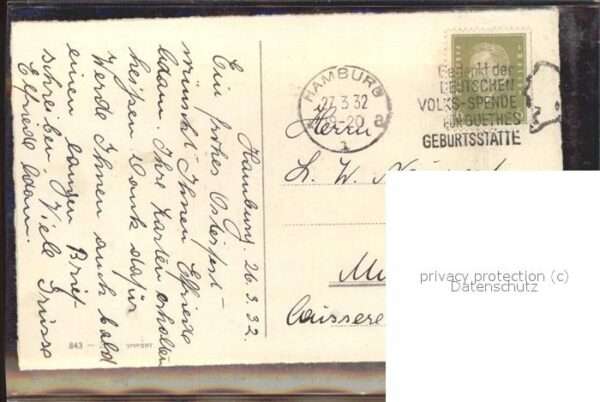 Hamburg, 26.3.32.
Ein frohes Osterfest
wünscht Ihnen Elfriede
Adam. Ihre Karten erhalten
heißen Dank dafür
Werde Ihnen auch bald
einen langen Brief
schreiben. Viele Grüsse
Elfriede Adam.
843
HAMBURG
27.3.32
19-20
a
1
Gedenkt der
DEUTSCHEN
VOLKS-SPENDE
FÜR GOETHES
GEBURTSSTÄTTE
Herrn
L. W.
privacy protection (c)
Datenschutz